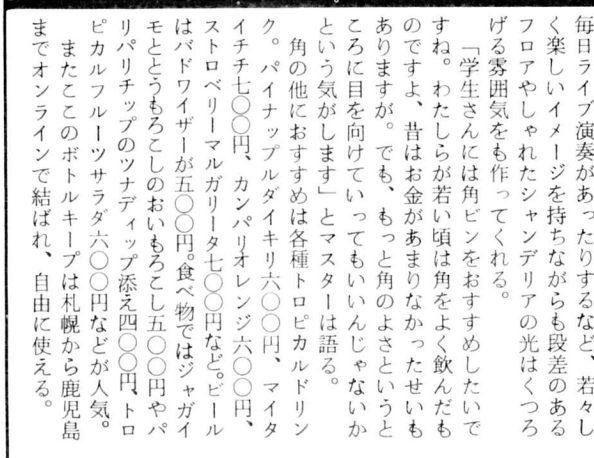 毎日ライブ演奏があったりするなど、若々し
く楽しいイメージを持ちながらも段差のある
フロアやしゃれたシャンデリアの光はくつろ
げる雰囲気をも作ってくれる。
「学生さんには角ビンをおすすめしたいで
すね。わたしらが若い頃は角をよく飲んだも
のですよ、昔はお金があまりなかったせいも
ありますが。でも、もっと角のよさというと
ころに目を向けていってもいいんじゃないか
という気がします」とマスターは語る。
角の他におすすめは各種トロピカルドリン
ク。パイナップルダイキリ六〇〇円、マイタ
イチチ七〇〇円、カンパリオレンジ六〇〇円、
ストロベリーマルガリータ七〇〇円など。ビール
はバドワイザーが五〇〇円。食べ物ではジャガイ
モととうもろこしのおいもろこし五〇〇円やパ
リパリチップのツナディップ添え四〇〇円、トロ
ピカルフルーツサラダ六〇〇円などが人気。
またここのボトルキープは札幌から鹿児島
までオンラインで結ばれ、自由に使える。